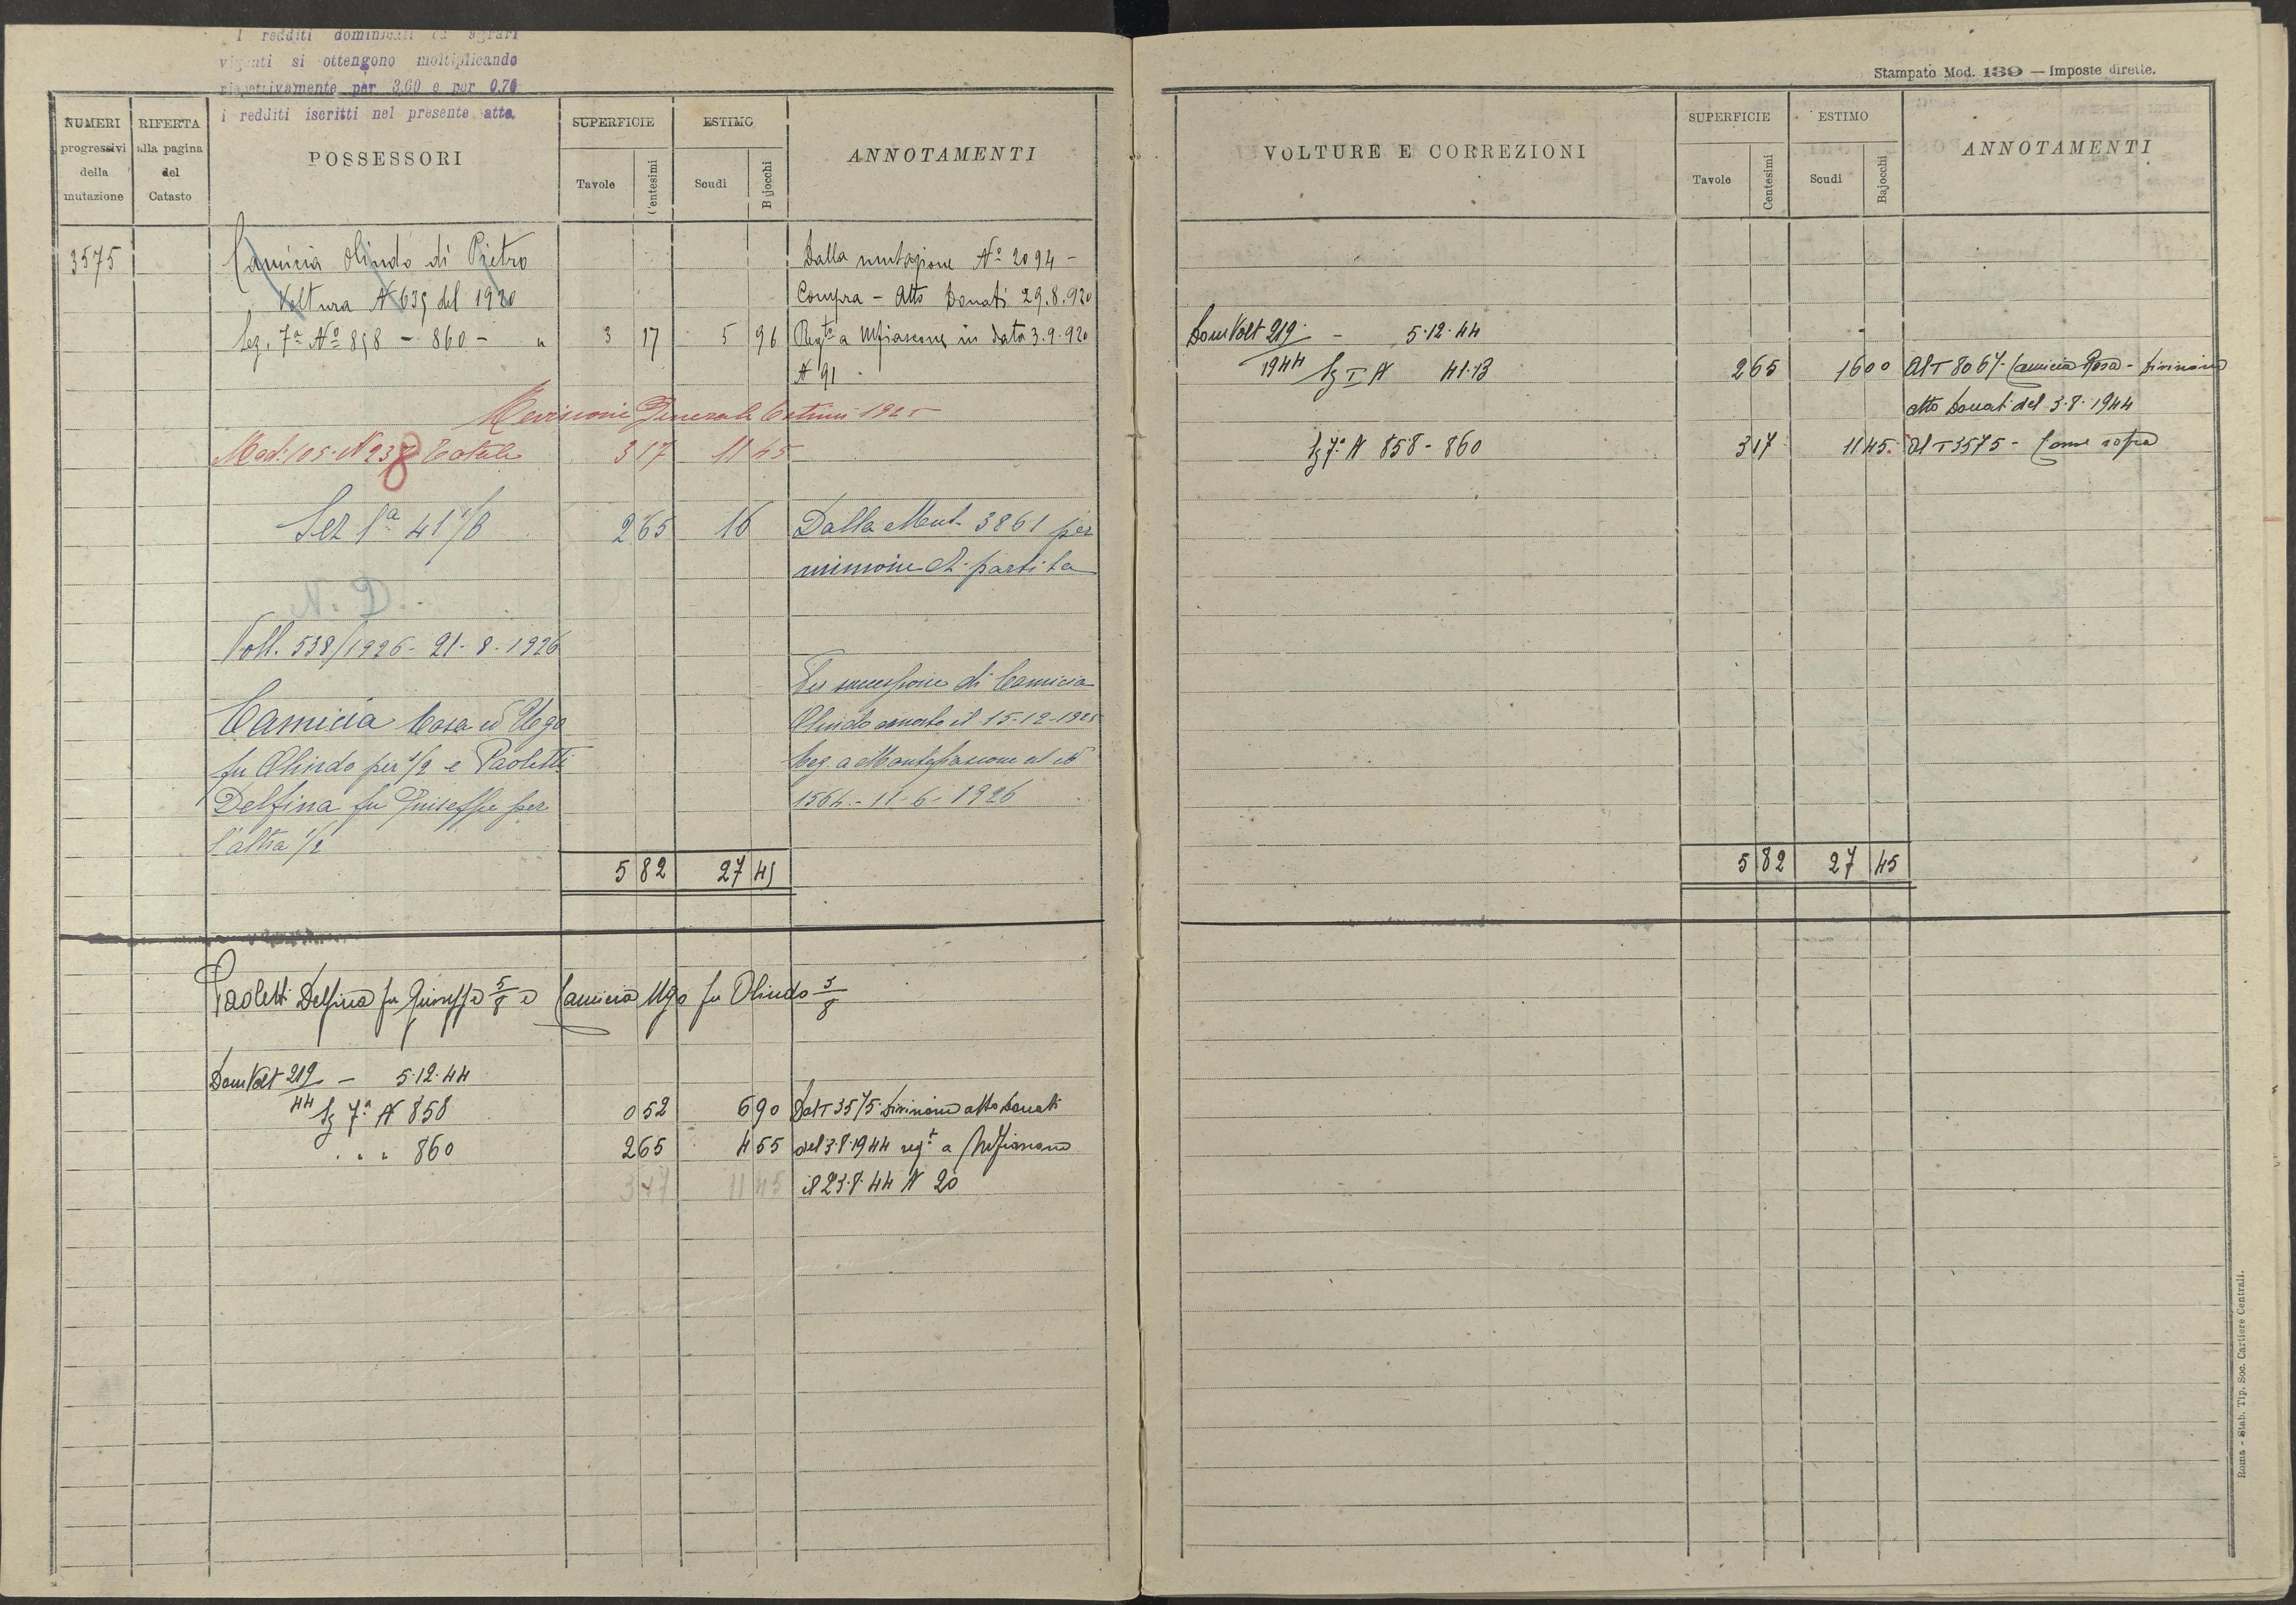 I redditi dominicali ed agrari
vigenti si ottengono moltiplicando
rispettivamente per 3.60 e per 0.70
i redditi iscritti nel presente atto.
NUMERI progressivi della mutazione
RIFERTA alla pagina del Catasto
POSSESSORI
SUPERFICIE
Tavole
Centesimi
ESTIMO
Scudi
Bajocchi
ANNOTAMENTI
3575 Camicia Olindo di Pietro Dalla mutazione Nº 2094 -
Voltura N 639 del 1920 Compra - Atto Donati 29.8.920
Sez. 7ª Nº 858 - 860 - " 3 17 5 96 Regto a Mfiascone in data 3.9.920
N 91
Revisione Generale Estimi 1925
Mod. 105 N 238 Totale 3 17 11 45
Sez 1ª 41/B 2 65 16 Dalla Mut. 3861 per
riunione di partita
N. D.
Volt. 538/1926 - 21-8-1926
Per successione di Camicia
Camicia Rosa ed Ugo Olindo morto il 15-12-1925
fu Olindo per 1/2 e Paoletti Reg. a Montefiascone al N
Delfina fu Giuseppe per 1564 - 11-6-1926
l'altra 1/2
5 82 27 45
Paoletti Delfina fu Giuseppe 5/8 e Camicia Ugo fu Olindo 3/8
Dom Volt 219/44 - 5.12.44
Sz 7ª N 858 0 52 6 90 Dal T 3575 Divisione atto Donati
" " " 860 2 65 4 55 del 3.8.1944 regt a Mfiascone
3 17 11 45 il 23.8.44 N 20
Stampato Mod. 139 — Imposte dirette.
VOLTURE E CORREZIONI
SUPERFICIE
Tavole
Centesimi
ESTIMO
Scudi
Bajocchi
ANNOTAMENTI
Dom Volt 219/1944 - 5.12.44
Sz I N 41.B 2 65 16 00 Al T 8067 Camicia Rosa - Divisione
atto Donati del 3.8.1944
Sz 7ª N 858 - 860 3 17 11 45 Al T 3575 - Come sopra
5 82 27 45
Roma - Stab. Tip. Soc. Cartiere Centrali.